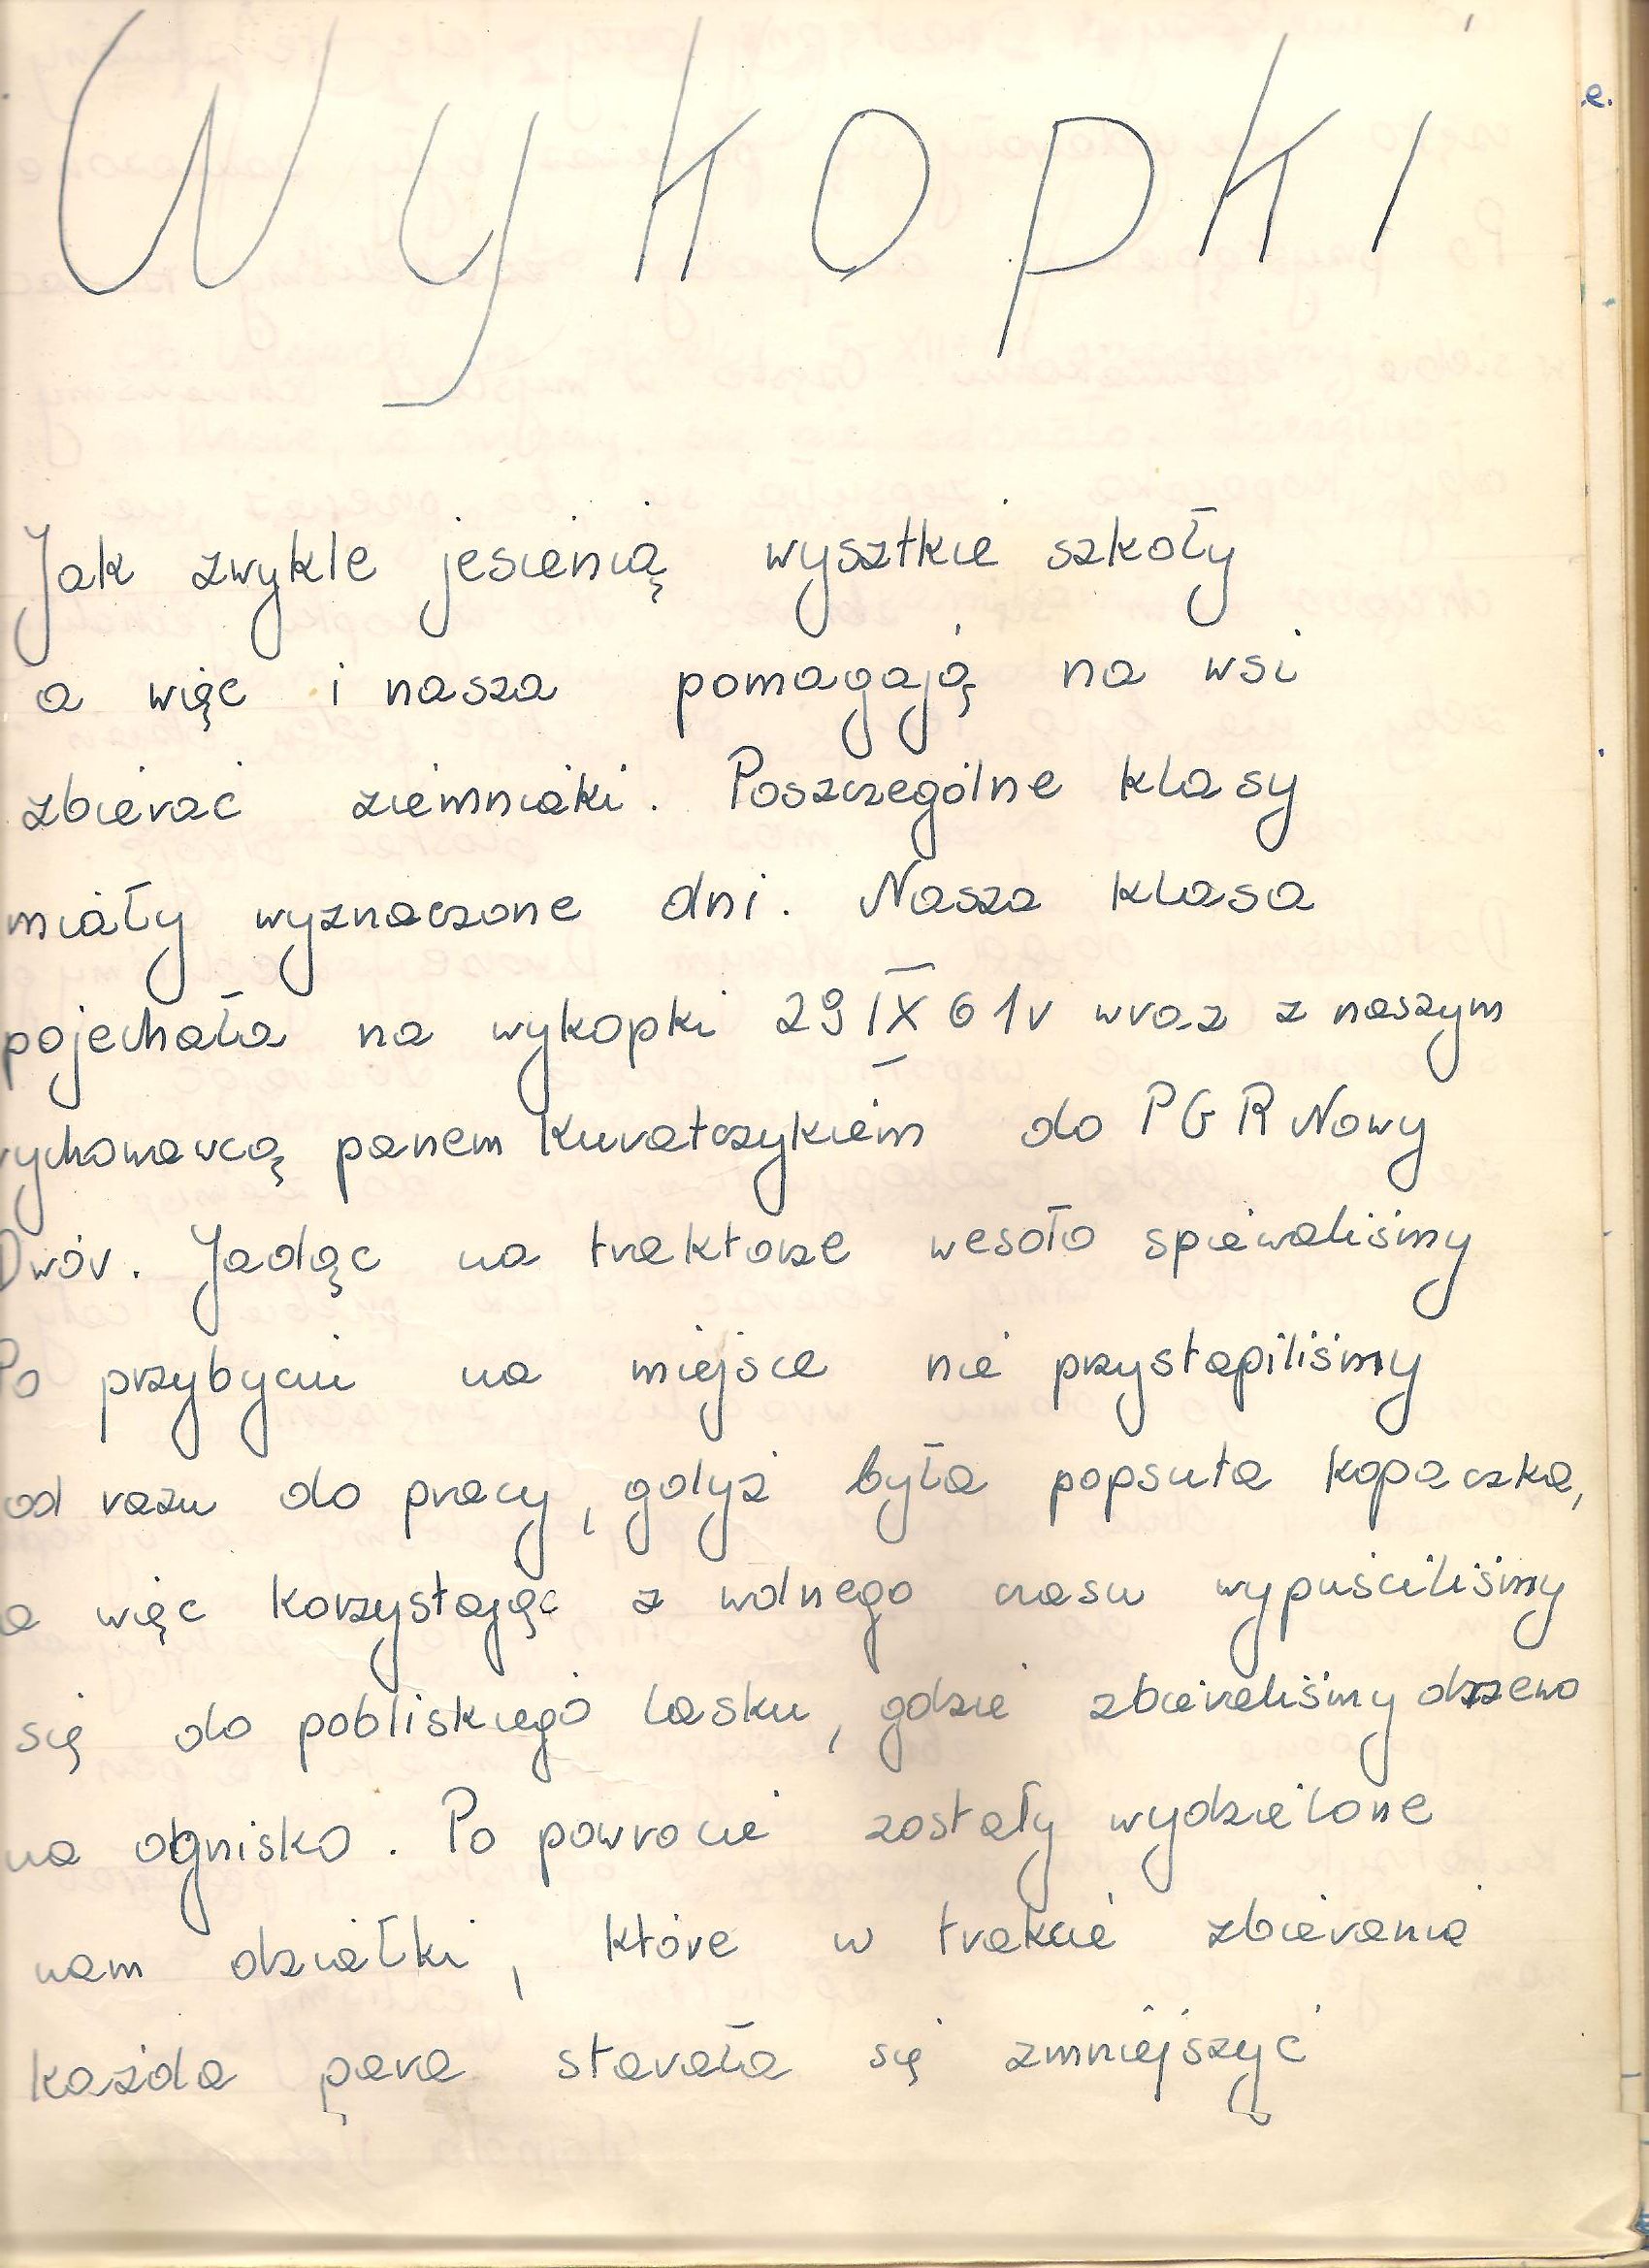 Wykopki
Jak zwykle jesienią wysztkie szkoły
a więc i nasza pomagają na wsi
zbierać ziemniaki. Poszczególne klasy
miały wyznaczone dni. Nasza klasa
pojechała na wykopki 29 IX 61r wraz z naszym
wychowawcą panem Kuratczykiem do PGR Nowy
Dwór. Jadąc na traktorze wesoło spiewaliśmy
Po przybyciu na miejsce nie przystapiliśmy
od razu do pracy, gdyż była popsuta kopaczka,
a więc korzystając z wolnego czasu wypuściliśmy
się do pobliskiego lasku, gdzie zbieraliśmy drzewo
na ognisko. Po powrocie zostały wydzielone
nam działki, które w trakcie zbierania
każda para starała się zmniejszyć